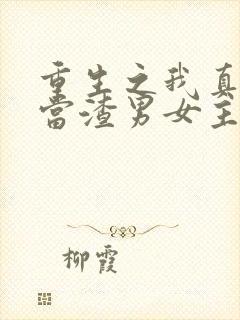 重生之我真
当渣男女主
柳霞